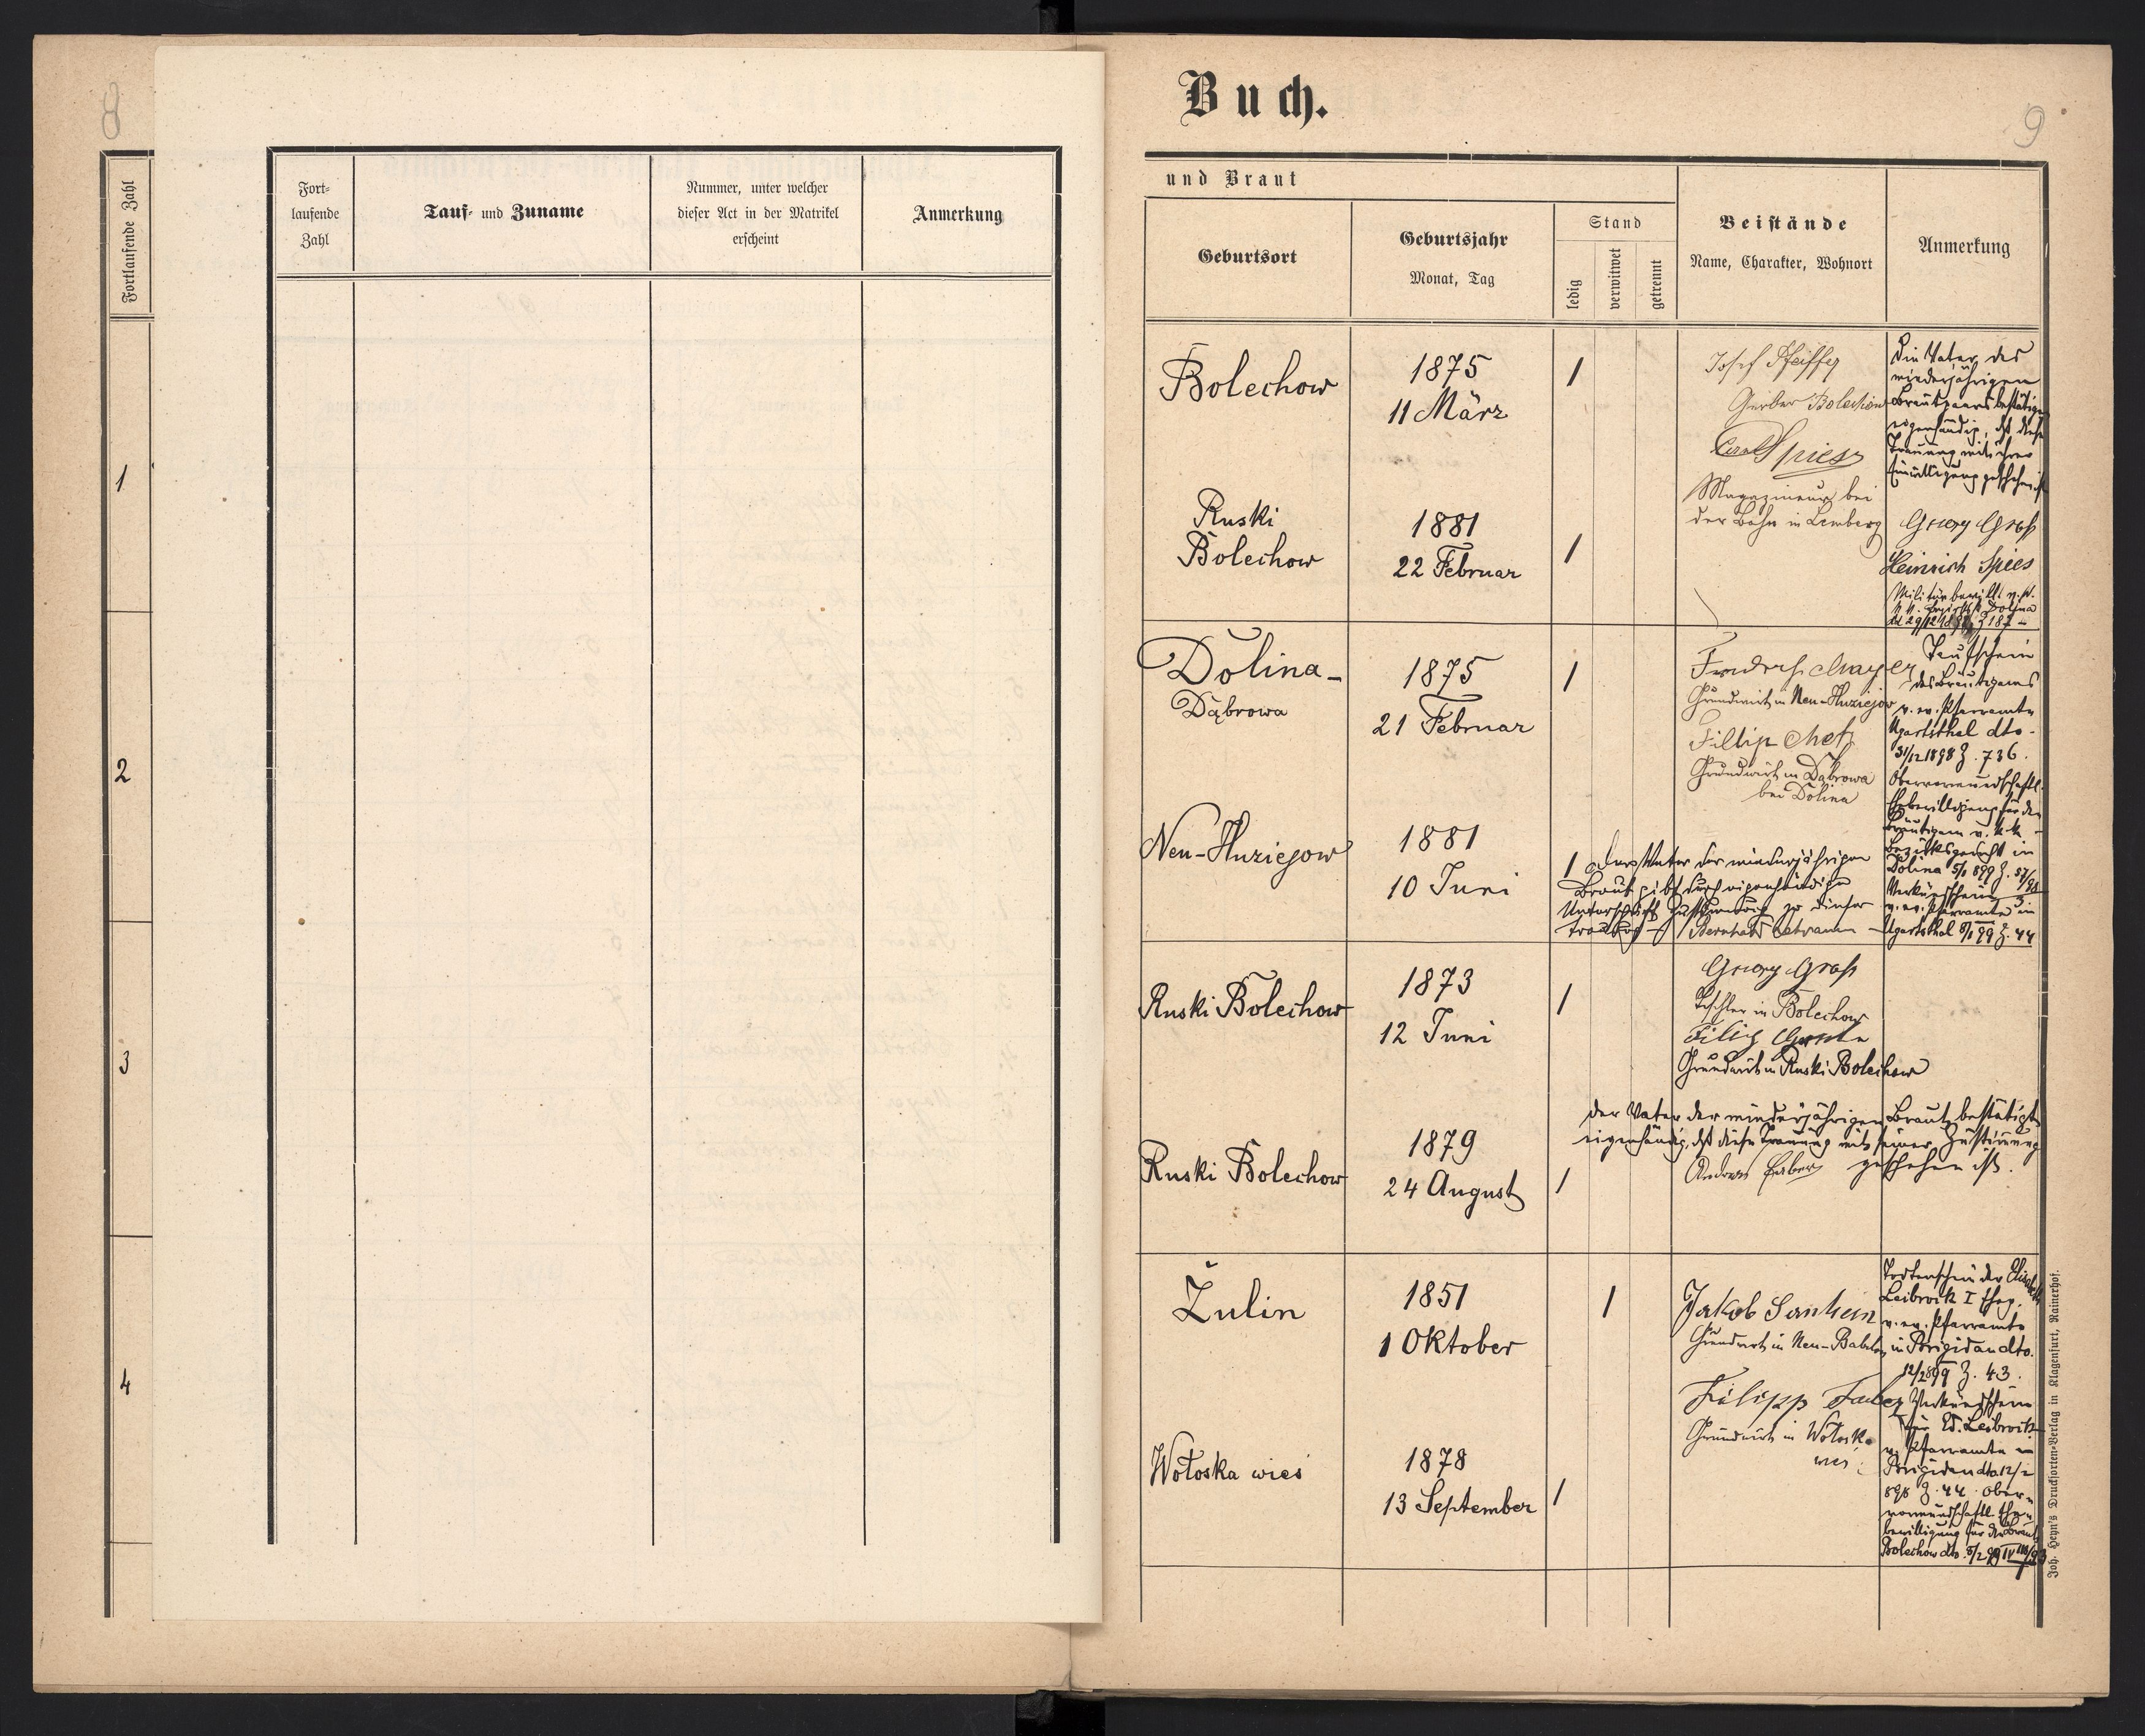 8
Fortlaufende Zahl
1
2
3
4
Fort-
laufende
Zahl
Tauf- und Zuname
Nummer, unter welcher
dieser Act in der Matrikel
erscheint
Anmerkung
Buch.
9
und Braut
Geburtsort
Geburtsjahr
Monat, Tag
Stand
ledig
verwitwet
getrennt
Beistände
Name, Charakter, Wohnort
Anmerkung
Bolechow
1875
11 März
1
Josef Pfeiffer
Gerber Bolechow
Carl Spiess
Magazineur bei
der Bahn in Lemberg
Die Väter des
minderjährigen
Brautpaars bestätigen
eigenhändig, dß diese
Trauung mit ihrer
Einwilligung geschehen ist
Georg Groß
Heinrich Spies
Ruski
Bolechow
1881
22 Februar
1
Dolina-
Dąbrowa
1875
21 Februar
1
Friedrich Mayer
Grundwirt in Neu-Huziejow
Fillip
Grundwirt in Dąbrowa
bei Dolina
Taufschein
des Bräutigams
v. ev. Pfarramte
Ugartsthal dto.
31/12 1898 Z. 736.
Obervormundschaftl.
Ehebewilligung für den
Bräutigam v. k. k.
Bezirksgericht in
Dolina 5/1 899 Z. 57/98
Verkündschein
v. ev. Pfarramte in
Ugartsthal 8/1 99 Z. 44
Neu-Huziejow
1881
10 Juni
1
Der Vater der minderjährigen
Braut gibt durch eigenhändige
Unterschrift Zustimmung zu dieser
Trauung -
Ruski Bolechow
1873
12 Juni
1
Georg Groß
Tischler in Bolechow
Filip
Grundwirt in Ruski Bolechow
Der Vater der minderjährigen Braut bestätigt
eigenhändig, dß diese Trauung mit seiner Zustimmung
Andreas Faber geschehen ist.
Ruski Bolechow
1879
24 August
1
Żulin
1851
1 Oktober
1
Jakob
Grundwirt in Neu-Babilon
Filipp Faber
Grundwirt in Wołoska
wies
Todtenschein der Elisabeth
Leibrock I Eheg.
v. ev. Pfarramte
in Brigidau dto.
12/2 899 Z. 43.
Verkündschein
für Ed. Leibrock
v. Pfarramte in
Brigidau dto 12/2
898 Z. 44. Ober-
vormundschaftl. Ehe-
bewilligung für die Braut
Wołoska wies
1878
13 September
1
Joh. Heyn's Drucksorten-Verlag in Klagenfurt, Rainerhof.